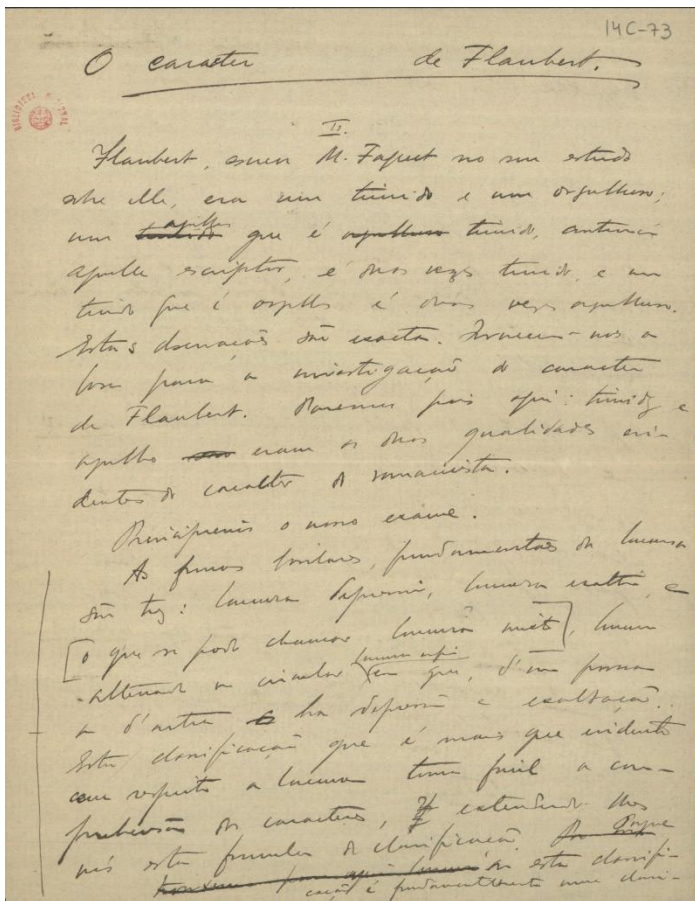 14C-73
O caracter de Flaubert.
BIBLIOTECA NACIONAL
II.
Flaubert, M. Faguet no seu estudo
sobre elle, era um timido e um orgulhoso;
um orgulhoso que é orgulhoso timido,
aquelle escriptor, é duas vezes timido, e um
timido que é orgulhoso é duas vezes orgulhoso.
Estas observações são exactas. Fornecem-nos a
base para a investigação do caracter
de Flaubert. pois aqui: timidez e
orgulho eram as duas qualidades evi-
dentes do caracter do romancista.
Principiemos o nosso exame.
As formas fundamentaes da loucura
são trez: loucura depressiva, loucura exaltada, e
[o que se pode chamar loucura mixta], loucura
alternada ou circular em que, d'uma forma
ou d'outra ha depressão e exaltação.
Esta classificação que é mais que evidente
com respeito a loucura torna facil a com-
prehensão dos caracteres, extendendo-lhes
nós esta formula de classificação. Porque
esta classifi-
cação é fundamentalmente uma classi-